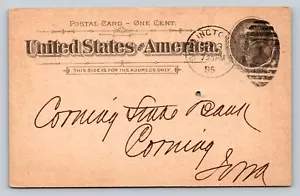 POSTAL CARD - ONE CENT.
United States of America.
THIS SIDE IS FOR THE ADDRESS ONLY.
INGTO
7 30 PM
95
Corning State Bank
Corning
Iowa